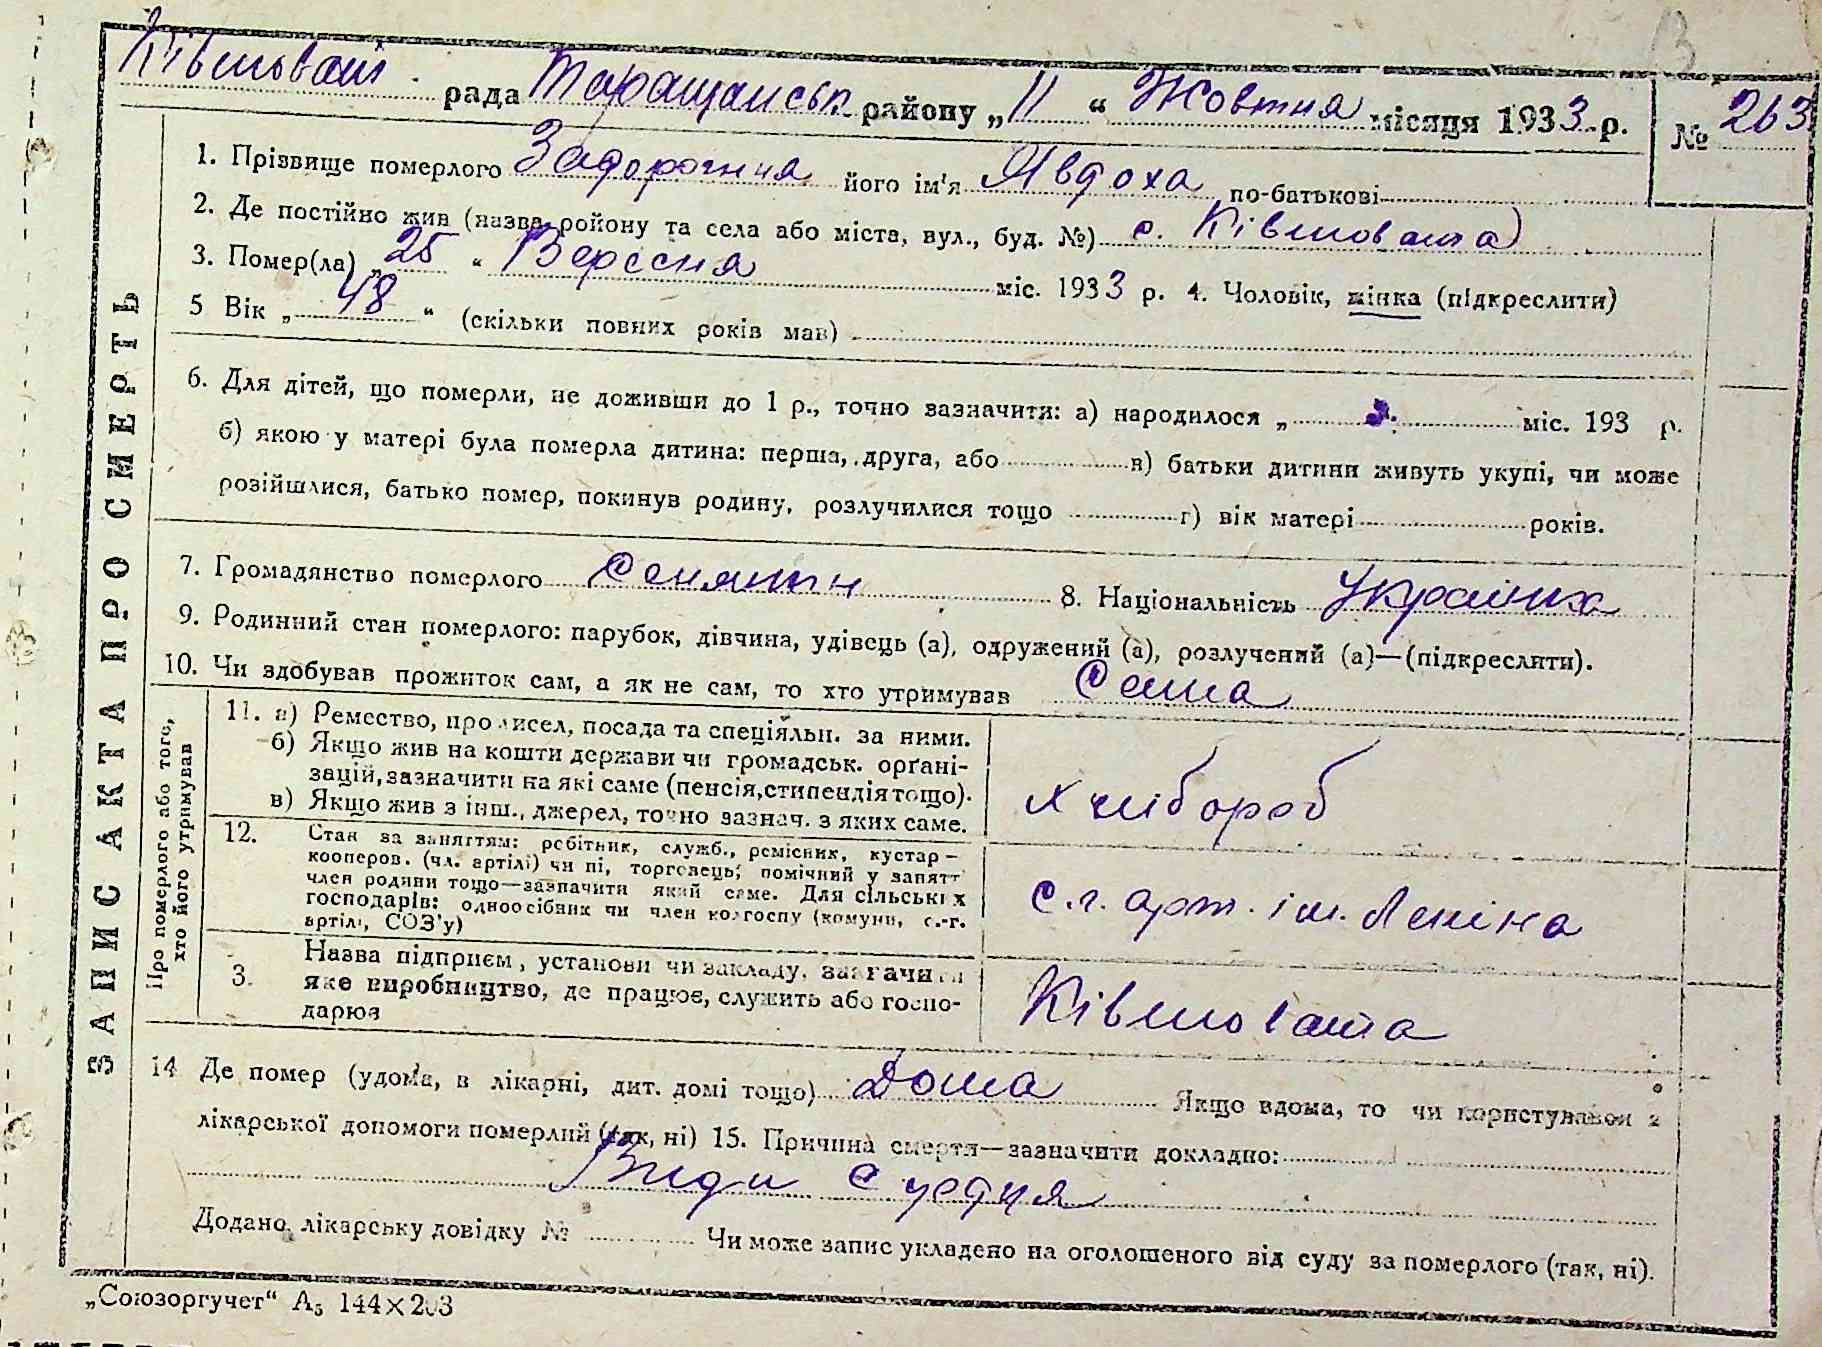 Ківшоват. рада Таращанськ. району „11“ Жовтня місяця 1933 р. № 263
ЗАПИСАКТА ПРО СМЕРТЬ
1. Прізвище померлого Задорожня його ім'я Явдоха по-батькові
2. Де постійно жив (назва ройону та села або міста, вул., буд. №) с. Ківшовата
3. Помер(ла) „25“ Вересня міс. 1933 р. 4. Чоловік, жінка (підкреслити)
5 Вік „48“ (скільки повних років мав)
6. Для дітей, що померли, не доживши до 1 р., точно зазначити: а) народилося „ міс. 193 р.
б) якою у матері була померла дитина: перша, друга, або в) батьки дитини живуть укупі, чи може
розійшлися, батько помер, покинув родину, розлучилися тощо г) вік матері років.
7. Громадянство померлого 8. Національність Українка
9. Родинний стан померлого: парубок, дівчина, удівець (а), одружений (а), розлучений (а)—(підкреслити).
10. Чи здобував прожиток сам, а як не сам, то хто утримував Сама
Про померлого або того,
хто його утримував
11. а) Ремество, промисел, посада та спеціяльн. за ними.
б) Якщо жив на кошти держави чи громадськ. орґані-
зацій, зазначити на які саме (пенсія, стипендія тощо).
в) Якщо жив з інш., джерел, точно зазнач. з яких саме.
Хлібороб
12. Стан за заняттям: робітник, служб., ремісник, кустар—
кооперов. (чл. артілі) чи ні, торговець; помічний у занятт
член родини тощо—зазначити який саме. Для сільських
господарів: одноосібник чи член колгоспу (комуни, с.-г.
артілі, СОЗ'у)
с.г. арт. ім. Леніна
3. Назва підприєм, установи чи закладу, зазначити
яке виробництво, де працює, служить або госпо-
дарює
Ківшовата
14 Де помер (удома, в лікарні, дит. домі тощо) Дома Якщо вдома, то чи користувався з
лікарської допомоги померлий (так, ні) 15. Причина смерти—зазначити докладно:
Додано лікарську довідку № Чи може запис укладено на оголошеного від суду за померлого (так, ні).
„Союзоргучет“ А5 144×203